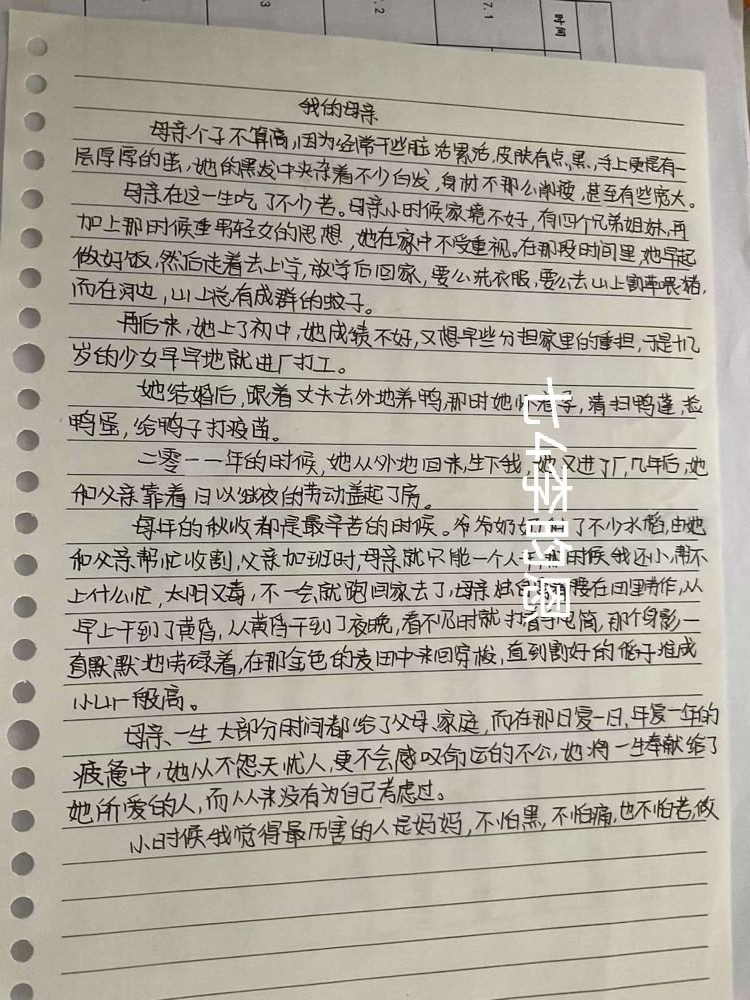 时间
7.1
7.2
3
我的母亲
母亲个子不算高,因为经常干些脏活累活,皮肤有点黑,手上更是有一
层厚厚的茧,她的黑发中夹杂着不少白发,身材不那么削瘦,甚至有些宽大。
母亲在这一生吃了不少苦。母亲小时候家境不好,有四个兄弟姐妹,再
加上那时候重男轻女的思想,她在家中不受重视。在那段时间里,她早起
做好饭,然后走着去上学,放学后回家,要么洗衣服,要么去山上割草喂猪,
而在河边,山上总有成群的蚊子。
再后来,她上了初中,她成绩不好,又想早些分担家里的重担,于是十几
岁的少女早早地就进厂打工。
她结婚后,跟着丈夫去外地养鸭,那时她怀着孕,清扫鸭蓬,捡
鸭蛋,给鸭子打疫苗。
二零一一年的时候,她从外地回来,生下我,她又进了厂,几年后,她
和父亲靠着日以继夜的劳动盖起了房。
每年的秋收都是最辛苦的时候。爷爷奶奶种了不少水稻,由她
和父亲帮忙收割,父亲加班时,母亲就只能一个人,那时候我还小,帮不
上什么忙,太阳又毒,不一会就跑回家去了,母亲腰在田里劳作,从
早上干到了黄昏,从黄昏干到了夜晚,看不见时就打着手电筒,那个身影一
直默默地劳碌着,在那金色的麦田中来回穿梭,直到割好的稻子堆成
小山一般高。
母亲一生大部分时间都给了父母、家庭,而在那日复一日,年复一年的
疲惫中,她从不怨天尤人,更不会感叹命运的不公,她将一生奉献给了
她所爱的人,而从来没有为自己考虑过。
小时候我觉得最厉害的人是妈妈,不怕黑,不怕痛,也不怕苦,做
七4李